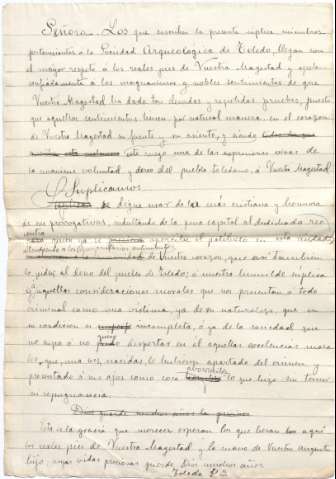 Señora: Los que suscriben la presente suplica, miembros
pertenecientes a la Sociedad Arqueológica de Toledo, llegan con
el mayor respeto á los reales pies de Vuestra Magestad y apelan
confiadamente á los magnanimos y nobles sentimientos de que
Vuestra Magestad ha dado tan elevadas y repetidas pruebas, puesto
que aquellos sentimientos tienen por natural manera, en el corazon
de Vuestra Magestad su fuente y su asiento, y siendo
este ruego una de las expresiones vivas de
la unanime voluntad y deseo del pueblo toledano, á Vuestra Magestad
Suplicamos
se digne usar de la más cristiana y hermosa
de sus prerrogativas, indultando de la pena capital al desdichado reo
contra quien ya se apercibe el patíbulo en esta ciudad,
de Vuestro corazon, que asi tambien
lo piden al deseo del pueblo de Toledo; a nuestra humilde suplica
y aquellas consideraciones morales que nos presentan á todo
criminal como una victima, ya de su naturaleza, que en
su condicion es incompleta, ó ya de la sociedad que
no supo ó no quiso despertar en el aquellas excelencias mora
les, que, una vez nacidas, le hubieran apartado del crimen y
presentado á sus ojos como cosa abominable lo que luego su torno
su repugnancia.
Dios guarde muchos años la preciosa
Esta es la gracia que merecer esperan los que besan los augus
tos reales pies de Vuestra Magestad y la mano de Vuestro Augusto
hijo, cuyas vidas preciosas guarde Dios muchos años.
Toledo